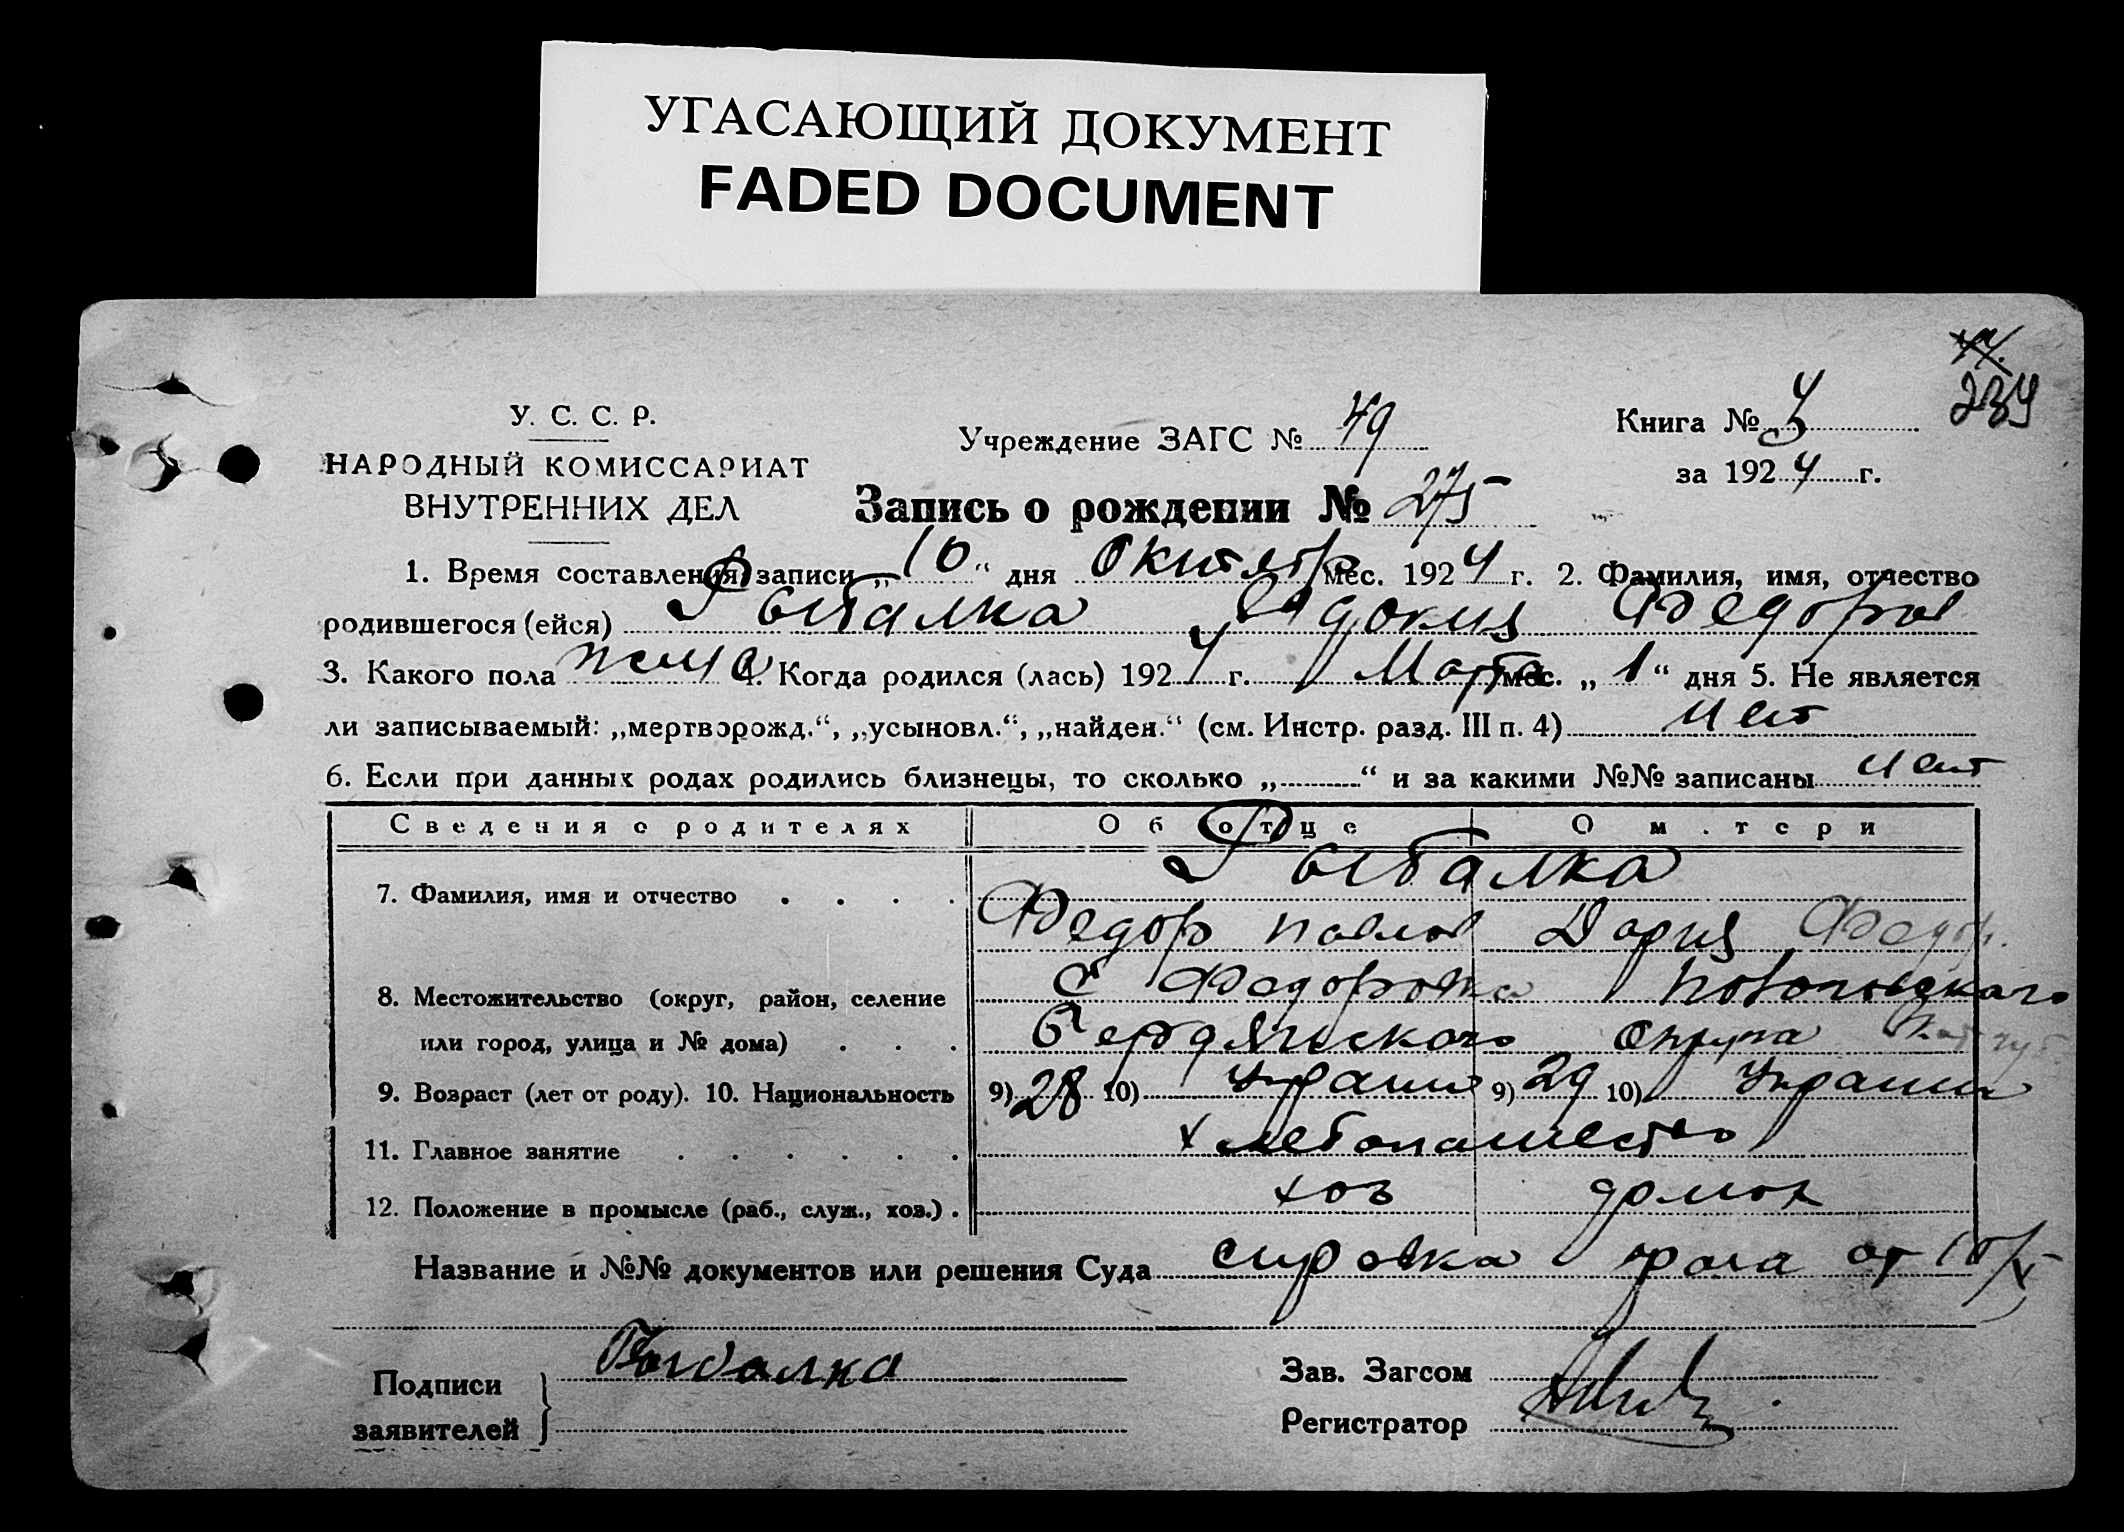 УГАСАЮЩИЙ ДОКУМЕНТ
FADED DOCUMENT
234
У. С. С. Р.
НАРОДНЫЙ КОМИССАРИАТ
ВНУТРЕННИХ ДЕЛ
Учреждение ЗАГС № 49
Книга № 3
за 1924 г.
Запись о рождении № 275
1. Время составления записи „10“ дня Октябр мес. 1924 г. 2. Фамилия, имя, отчество
родившегося (ейся) Рыбалка Евдокия Федоров
3. Какого пола жен 4. Когда родился (лась) 1924 г. Марта мес. „1“ дня 5. Не является
ли записываемый: „мертворожд.“, „усыновл.“, „найден.“ (см. Инстр. разд. III п. 4) нет
6. Если при данных родах родились близнецы, то сколько „ “ и за какими №№ записаны нет
Сведения о родителях Об отце О матери
7. Фамилия, имя и отчество Рыбалка
Федор Павлов Дария Федор.
8. Местожительство (округ, район, селение С Федоровка
или город, улица и № дома) Бердянского Округа
9. Возраст (лет от роду). 10. Национальность 9) 28 10) Украин 9) 29 10) Украин
11. Главное занятие хлебопашество
12. Положение в промысле (раб., служ., хоз.) хоз домох
Название и №№ документов или решения Суда справка от 10/X
Подписи Рыбалка
заявителей
Зав. Загсом
Регистратор